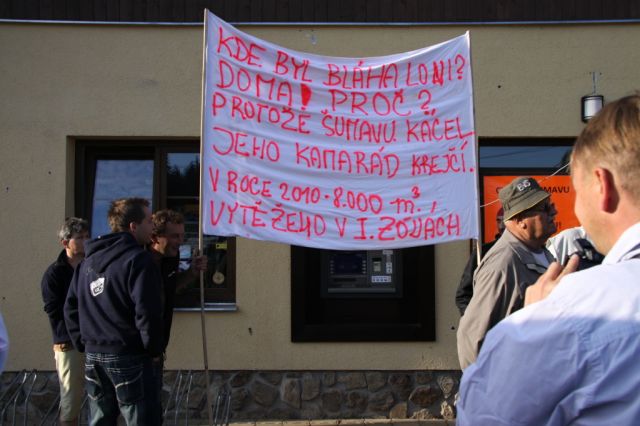 KDE BYL BLÁHA LONI?
DOMA! PROČ?
PROTOŽE ŠUMAVU KÁCEL
JEHO KAMARÁD KREJČÍ.
V ROCE 2010 - 8.000 m³.
VYTĚŽENO V I. ZÓNÁCH